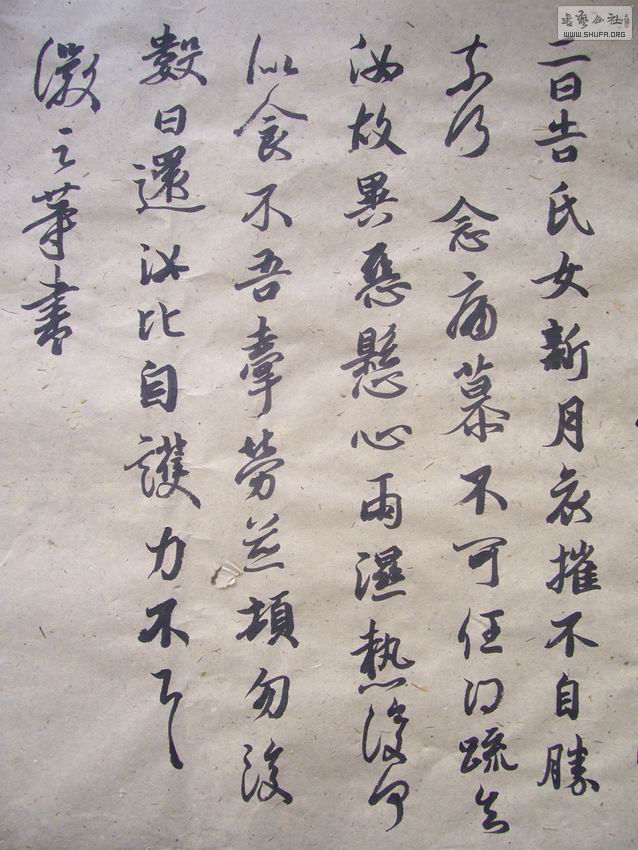 書藝公社
WWW.SHUFA.ORG
二日告氏女新月哀摧不自勝
奈何 念痛慕不可任得疏知
汝故異惡懸心雨濕熱復何
似食不吾牽勞並頓勿復
數日還汝比自護力不
徽之等書